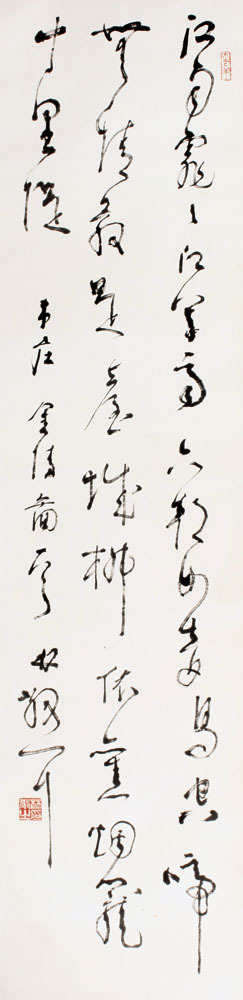 江雨霏〻江草齊六朝如夢鳥空啼
無情最是臺城柳依舊烟籠
十里隄 韋莊金陵圖 林散耳